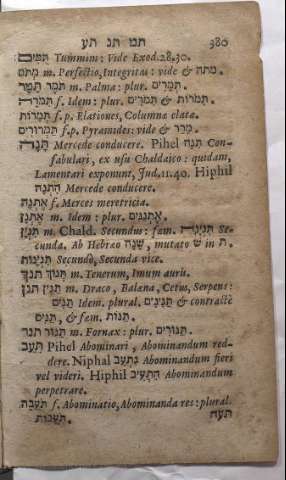 תמו תנ תע 380
תֻּמִּים Tummim: Vide Exod.28.30.
מְתֹם m. Perfectio, Integritas: vide & מתה
תָּמָר תֹּמֶר m. Palma: plur. תְּמָרִים.
תִּמֹרָה f. Idem: plur. תִּמֹרִים & תִּמֹרוֹת
תִּמְרוֹת f.p. Elationes, Columnæ elatæ.
תַּמְרוּרִים f.p. Pyramides: vide & מָרַר
תָּנָה Mercede conducere. Pihel תִּנָּה Con-
fabulari, ex usu Chaldaico: quidam,
Lamentari exponunt, Jud.11.40. Hiphil
הִתְנָה Mercede conducere.
אֶתְנָה f. Merces meretricia.
אֶתְנַן m. Idem: plur. אֶתְנַנִּים.
תִּנְיָן m. Chald. Secundus: fæm. תִּנְיָנָה Se-
cunda. Ab Hebræo שָׁנָה, mutato ש in ת.
תִּנְיָנוּת Secundò, Secunda vice.
תְּנוּךְ תנך m. Tenerum, Imum auris.
תַּנִּין תנן m. Draco, Balæna, Cetus, Serpens:
תַּנִּים Idem. plural. תַּנִּינִים & contractè
תַּנִּים, & fæm. תַּנּוֹת.
תַּנּוּר תנר m. Fornax: plur. תַּנּוּרִים.
תִּעֵב Pihel Abominari, Abominandum red-
dere. Niphal נִתְעַב Abominandum fieri
vel videri. Hiphil הִתְעִיב Abominandum
perpetrare.
תּוֹעֵבָה f. Abominatio, Abominanda res: plural.
תּוֹעֵבוֹת. תעה